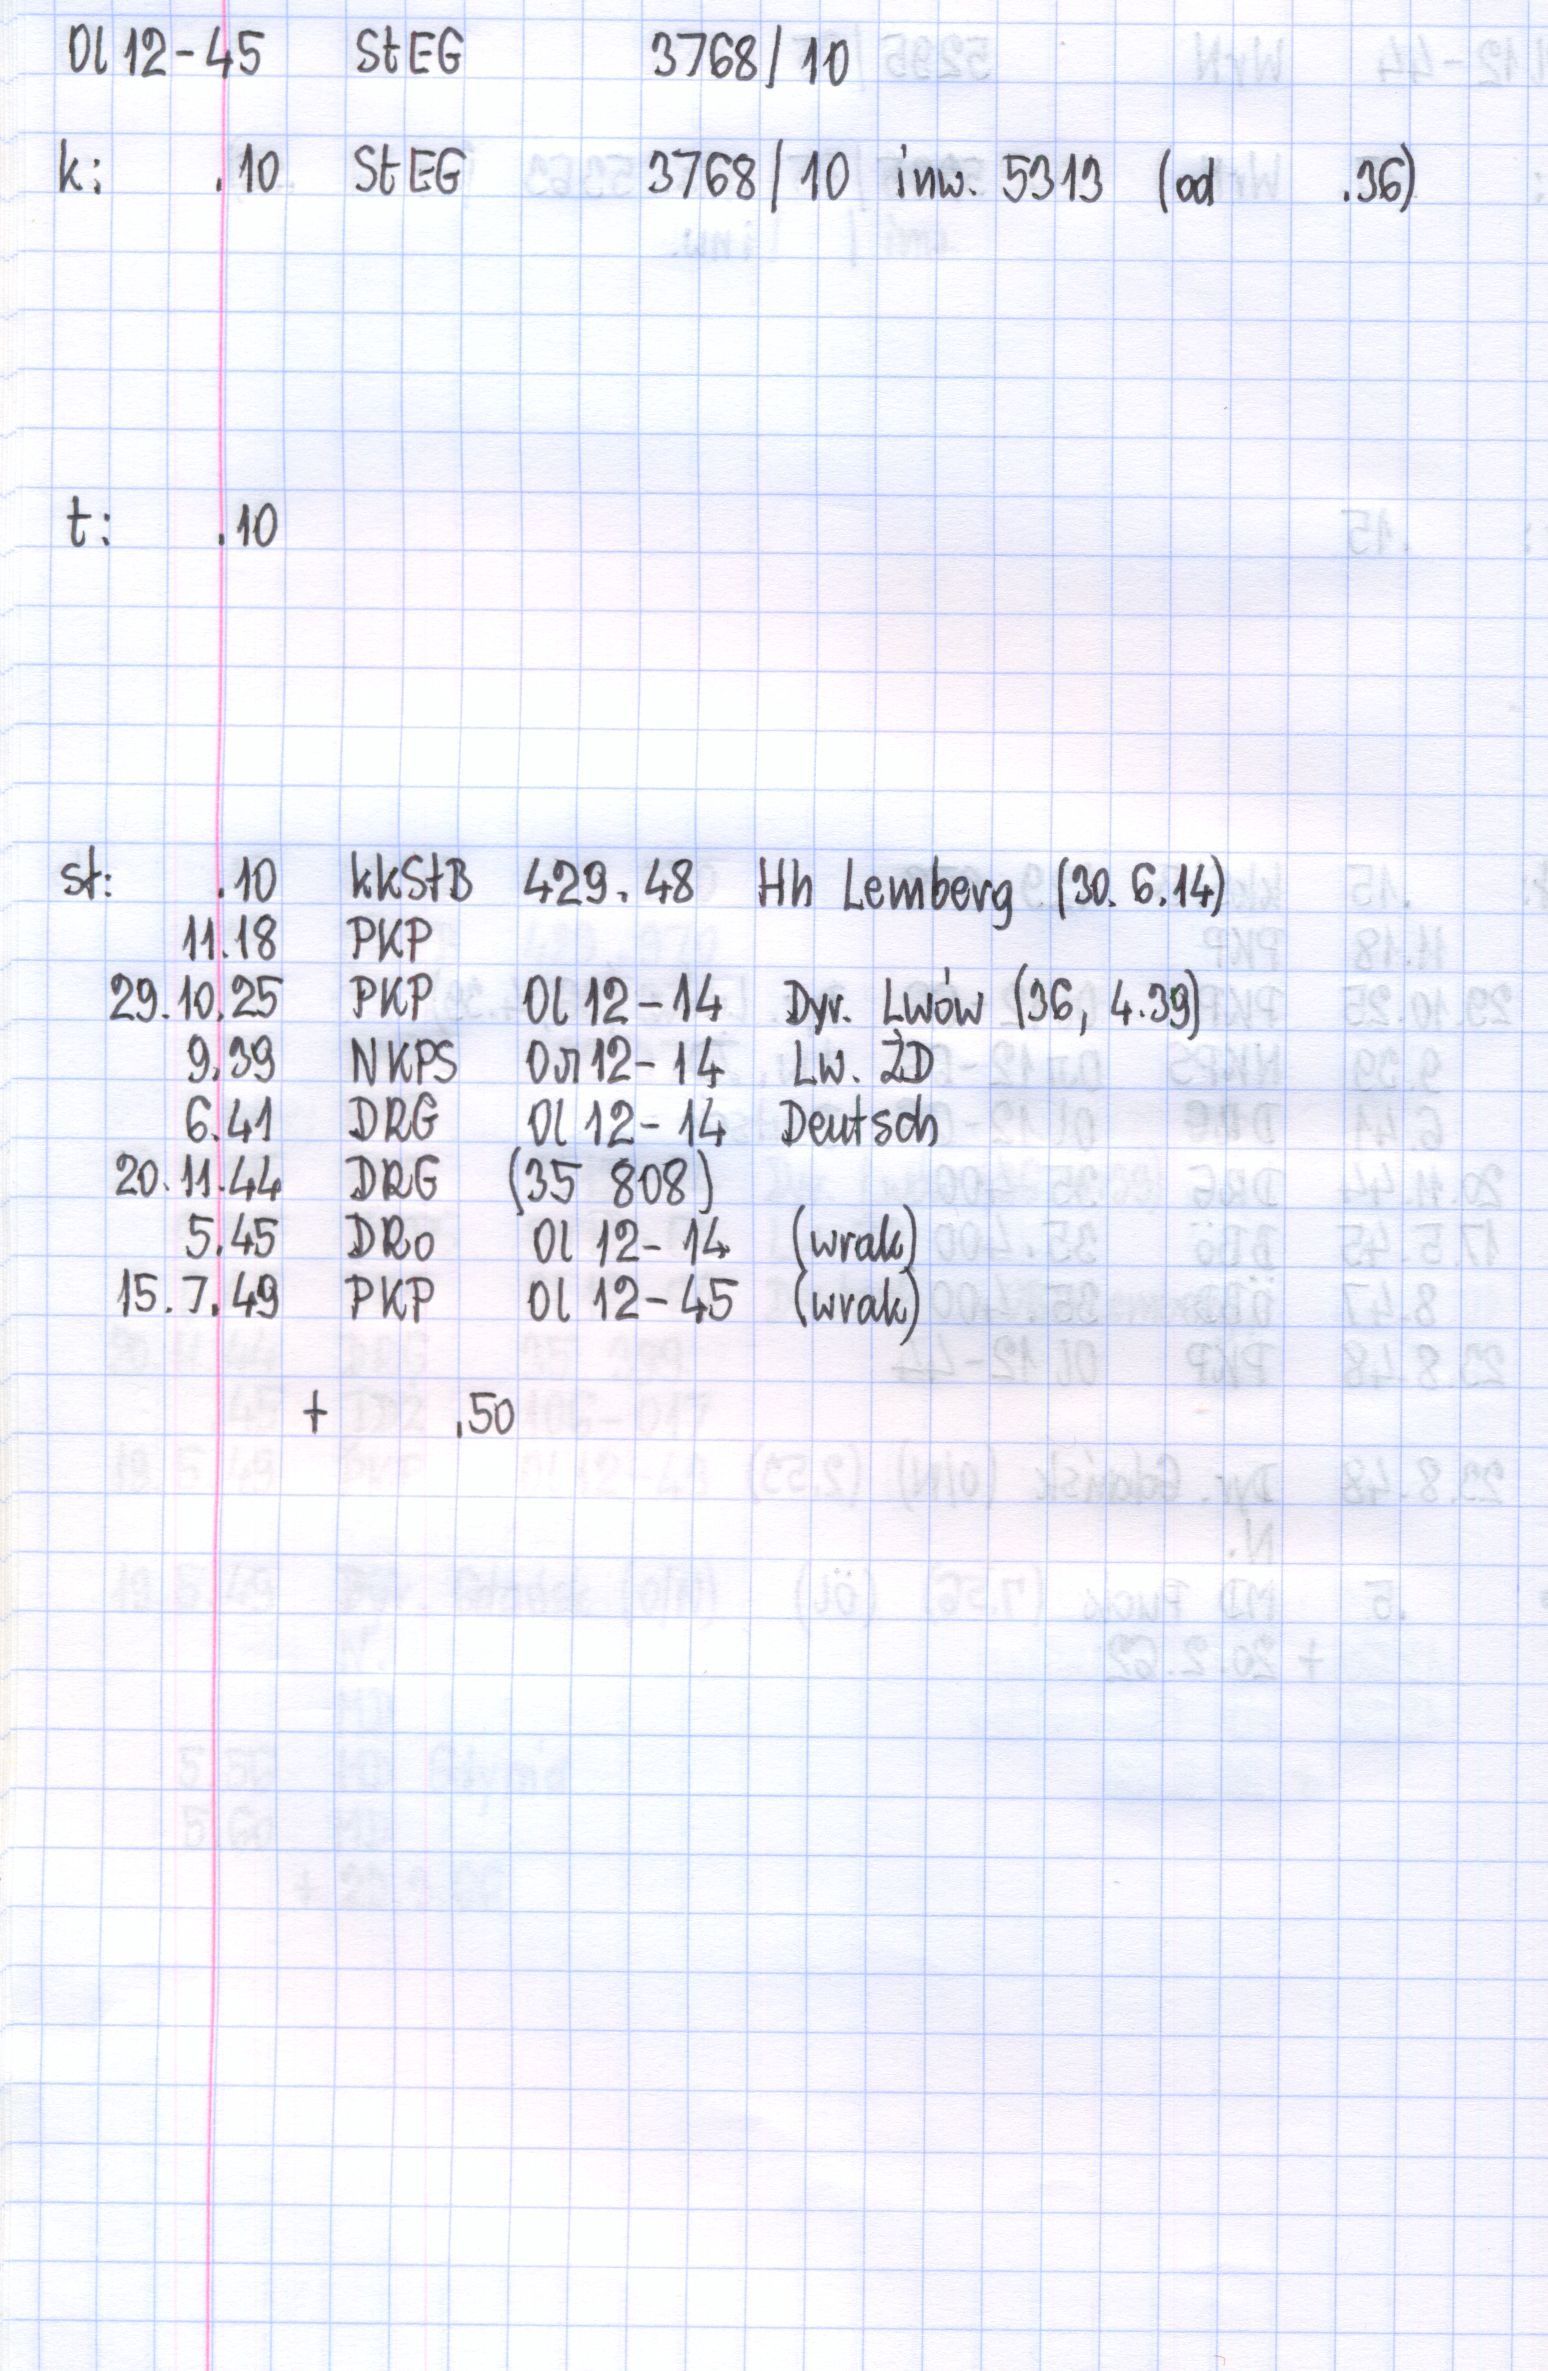 Ol 12-45 StEG 3768/10
k: .10 StEG 3768/10 inw. 5313 (od .36)
t: .10
st: .10 kkStB 429.48 Hh Lemberg (30.6.14)
11.18 PKP
29.10.25 PKP Ol 12-14 Dyr. Lwów (36, 4.39)
9.39 NKPS Ол 12-14 Lw. ŻD
6.41 DRG Ol 12-14 Deutsch
20.11.44 DRG (35 808)
5.45 DRo Ol 12-14 (wrak)
15.7.49 PKP Ol 12-45 (wrak)
+ .50